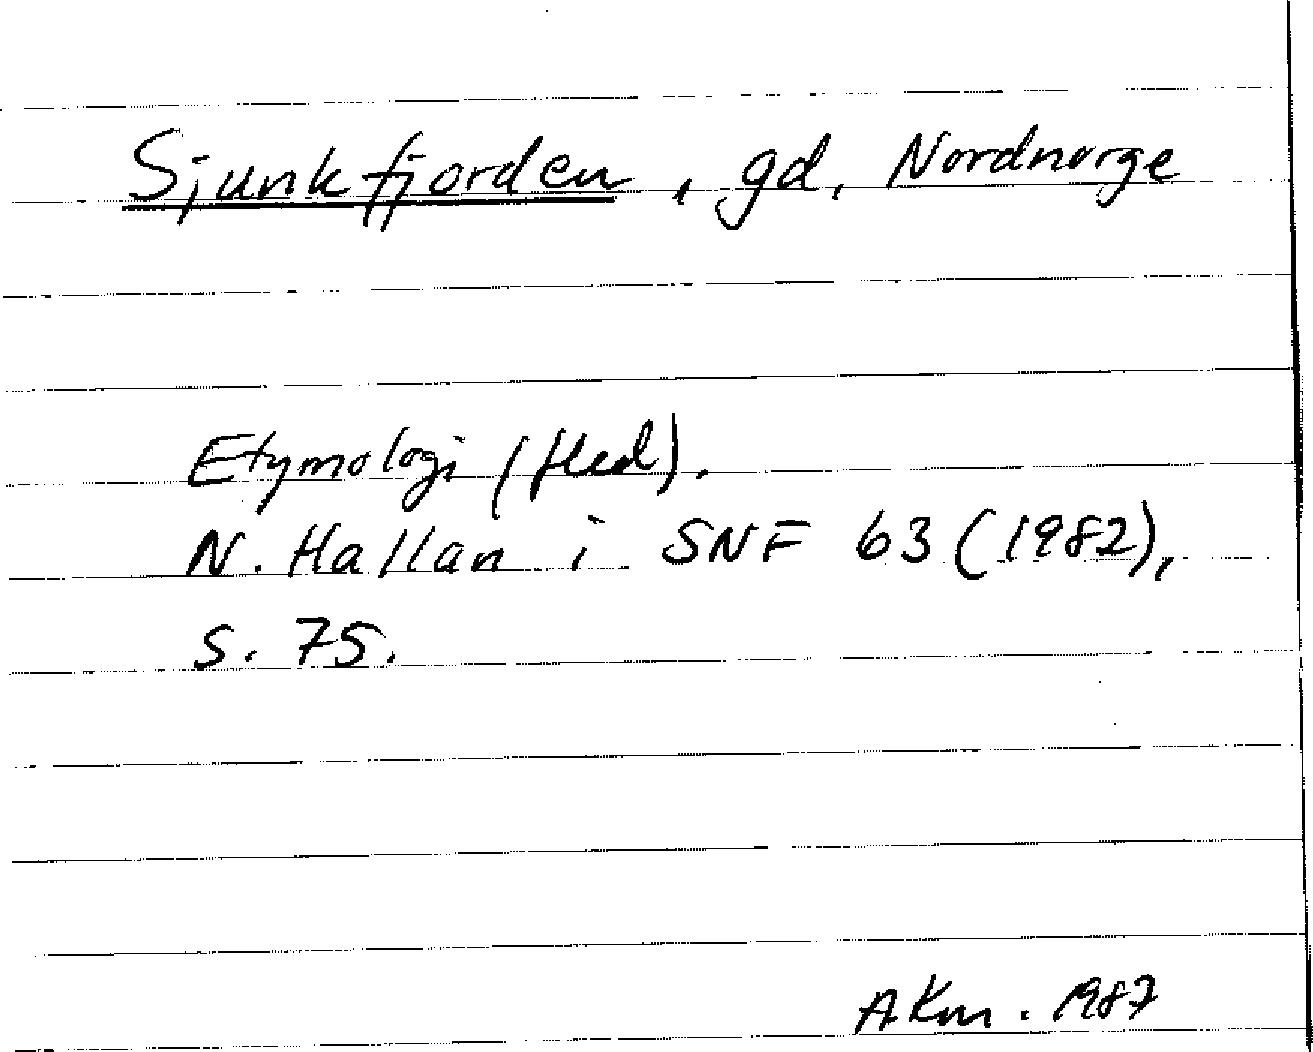 Sjunkfjorden, gd, Nordnorge
Etymologi (fled).
N. Hallan i SNF 63 (1982),
s. 75.
AKm. 1987